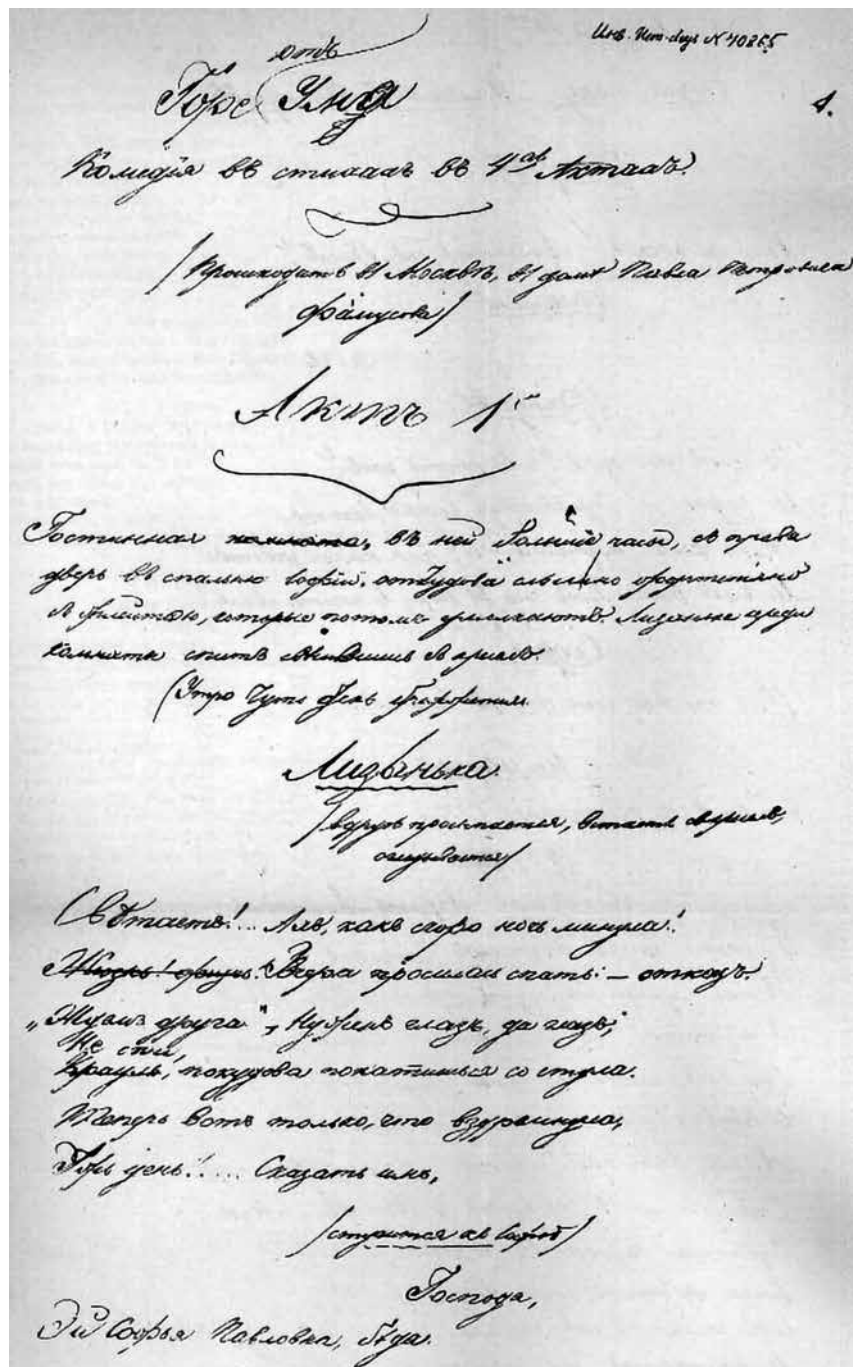 Инв. №40265
отъ
Горе Ума
1.
Комедія въ стихахъ въ 4хъ Актахъ.
/Происходитъ въ Москвѣ, въ домѣ Павла Петровича
Фамусова/
Актъ 1й
Гостинная комната, въ ней большіе часы, съ права
дверь въ спальню Софіи, откудова слышно фортепіяно
съ флейтою, которые потомъ умолкаютъ. Лизанька среди
комнаты спитъ свѣсившись съ креселъ.
(Утро чуть день брежжится
Лизынька.
/вдругъ просыпается, встаетъ съ креселъ,
оглядывается/
Свѣтаетъ!... Ахъ, какъ скоро ночь минула!
Вчера просилась спать: – отказъ.
„Ждемъ друга“, Нуженъ глазъ, да глазъ;
Не спи,
покудова покатишься со стула.
Теперь вотъ только, что вздремнула,
Ужъ день!.... Сказать имъ,
/стучится къ Софьѣ/
Господа,
Эй Софья Павловна, бѣда.